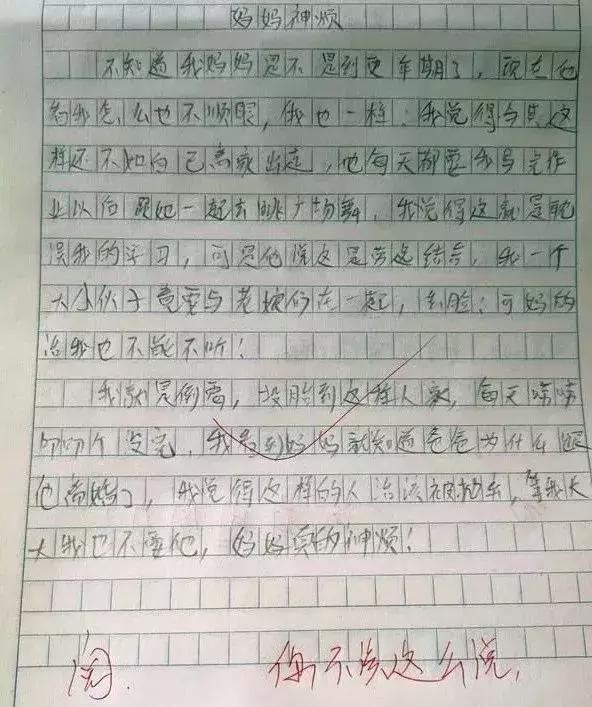 妈妈神烦
不知道我妈妈是不是到更年期了，现在他
看我怎么也不顺眼，我也一样：我觉得与其这
样还不如自己离家出走，他每天都要我写完作
业以后跟她一起去跳广场舞，我觉得这就是耽
误我的学习，可是他说这是劳逸结合，我一个
大小伙子竟要与老娘们在一起，丢脸；可妈的
话我也不能不听！
我就是倒霉，投胎到这种人家，每天唠唠
叨叨个没完，我看到妈妈就知道爸爸为什么跟
他离婚了，我觉得这样的人活该被抛弃，等我长
大我也不要他，妈妈真的神烦！
阅.
你不该这么说，